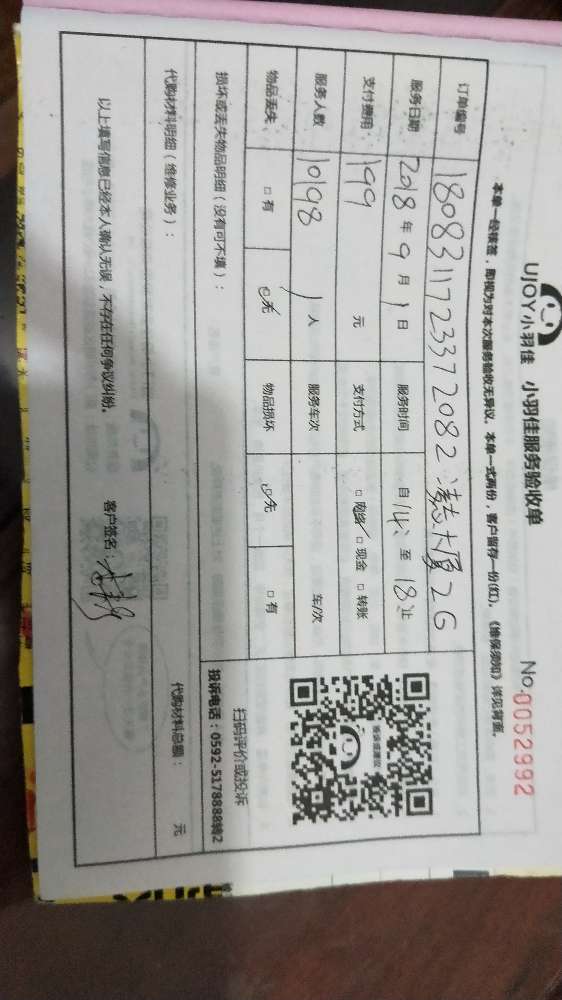 UJOY小羽佳 小羽佳服务验收单 No.0052992
本单一经核签,即视为对本次服务验收无异议。本单一式两份,客户留存一份(红)。《维保须知》详见背面。
订单编号 1808311723372082 凌志大厦2G
服务日期 2018年9月1日 服务时间 自14:至18止
支付费用: 199 元 支付方式 □网络 □现金 □转账
服务人数 10198 1人 服务车次 车/次
物品丢失: □有 □无 物品损坏 □无 □有
损坏或丢失物品明细(没有可不填):
扫码评价或投诉
投诉电话:0592-5178888转2
代购材料明细(维修业务): 代购材料总额: 元
以上填写信息已经本人确认无误,不存在任何争议纠纷。 客户签名: